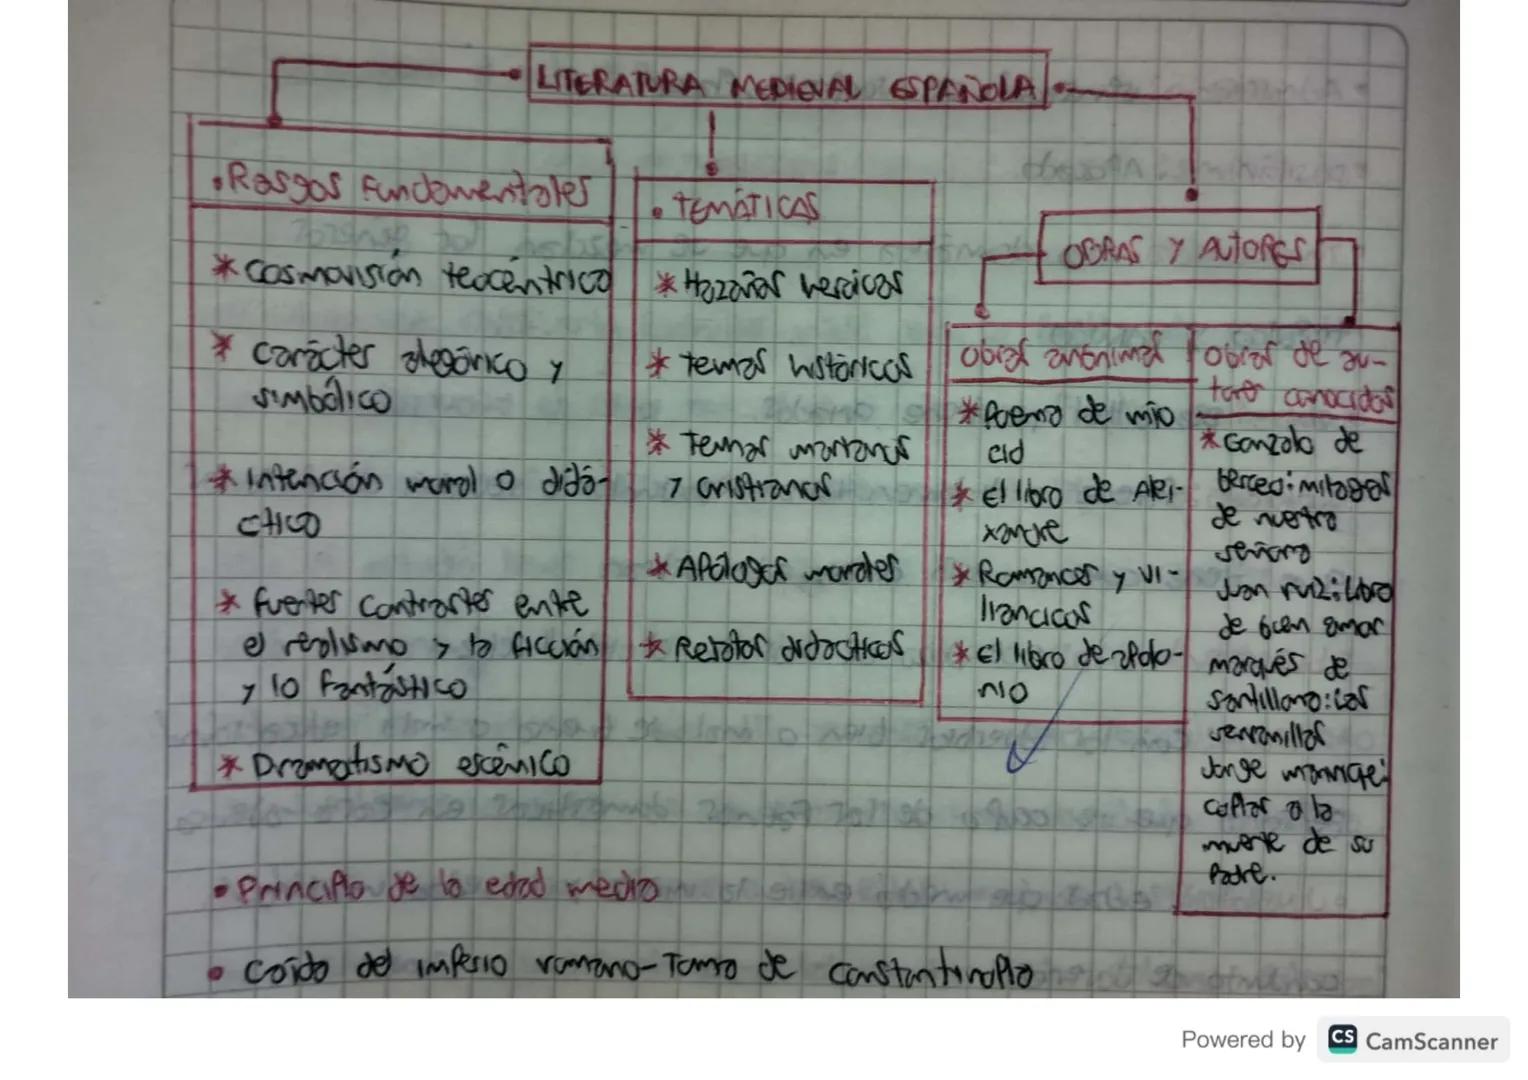 LITERATURA MEDIEVAL ESPAÑOLA
• Rasgos Fundamentales
* Cosmovisión teocéntrica
* Carácter alegórico y
simbólico
* Intención moral o didá-
ctico
* fuertes contrastes entre
el realismo y la ficción
y lo fantástico
* Dramatismo escénico
• TEMÁTICAS
* Hazañas heroicas
* temas históricos
* Temas marianos
y cristianos
* Apólogos morales
* Relatos didacticos
OBRAS Y AUTORES
Obras anónimas
* Poema de mio
cid
* El libro de Alei-
xandre
* Romances y vi-
llancicos
* El libro de apolo-
nio
Obras de au-
tores conocidos
* Gonzalo de
berceo: milagros
de nuestra
señora
Juan ruiz: Libro
de buen amor
marqués de
santillana: Las
serranillas
Jorge manrique:
coplas a la
muerte de su
Padre.
• Principio de la edad media
• Caída del imperio romano - Toma de Constantinopla
Powered by CS CamScanner